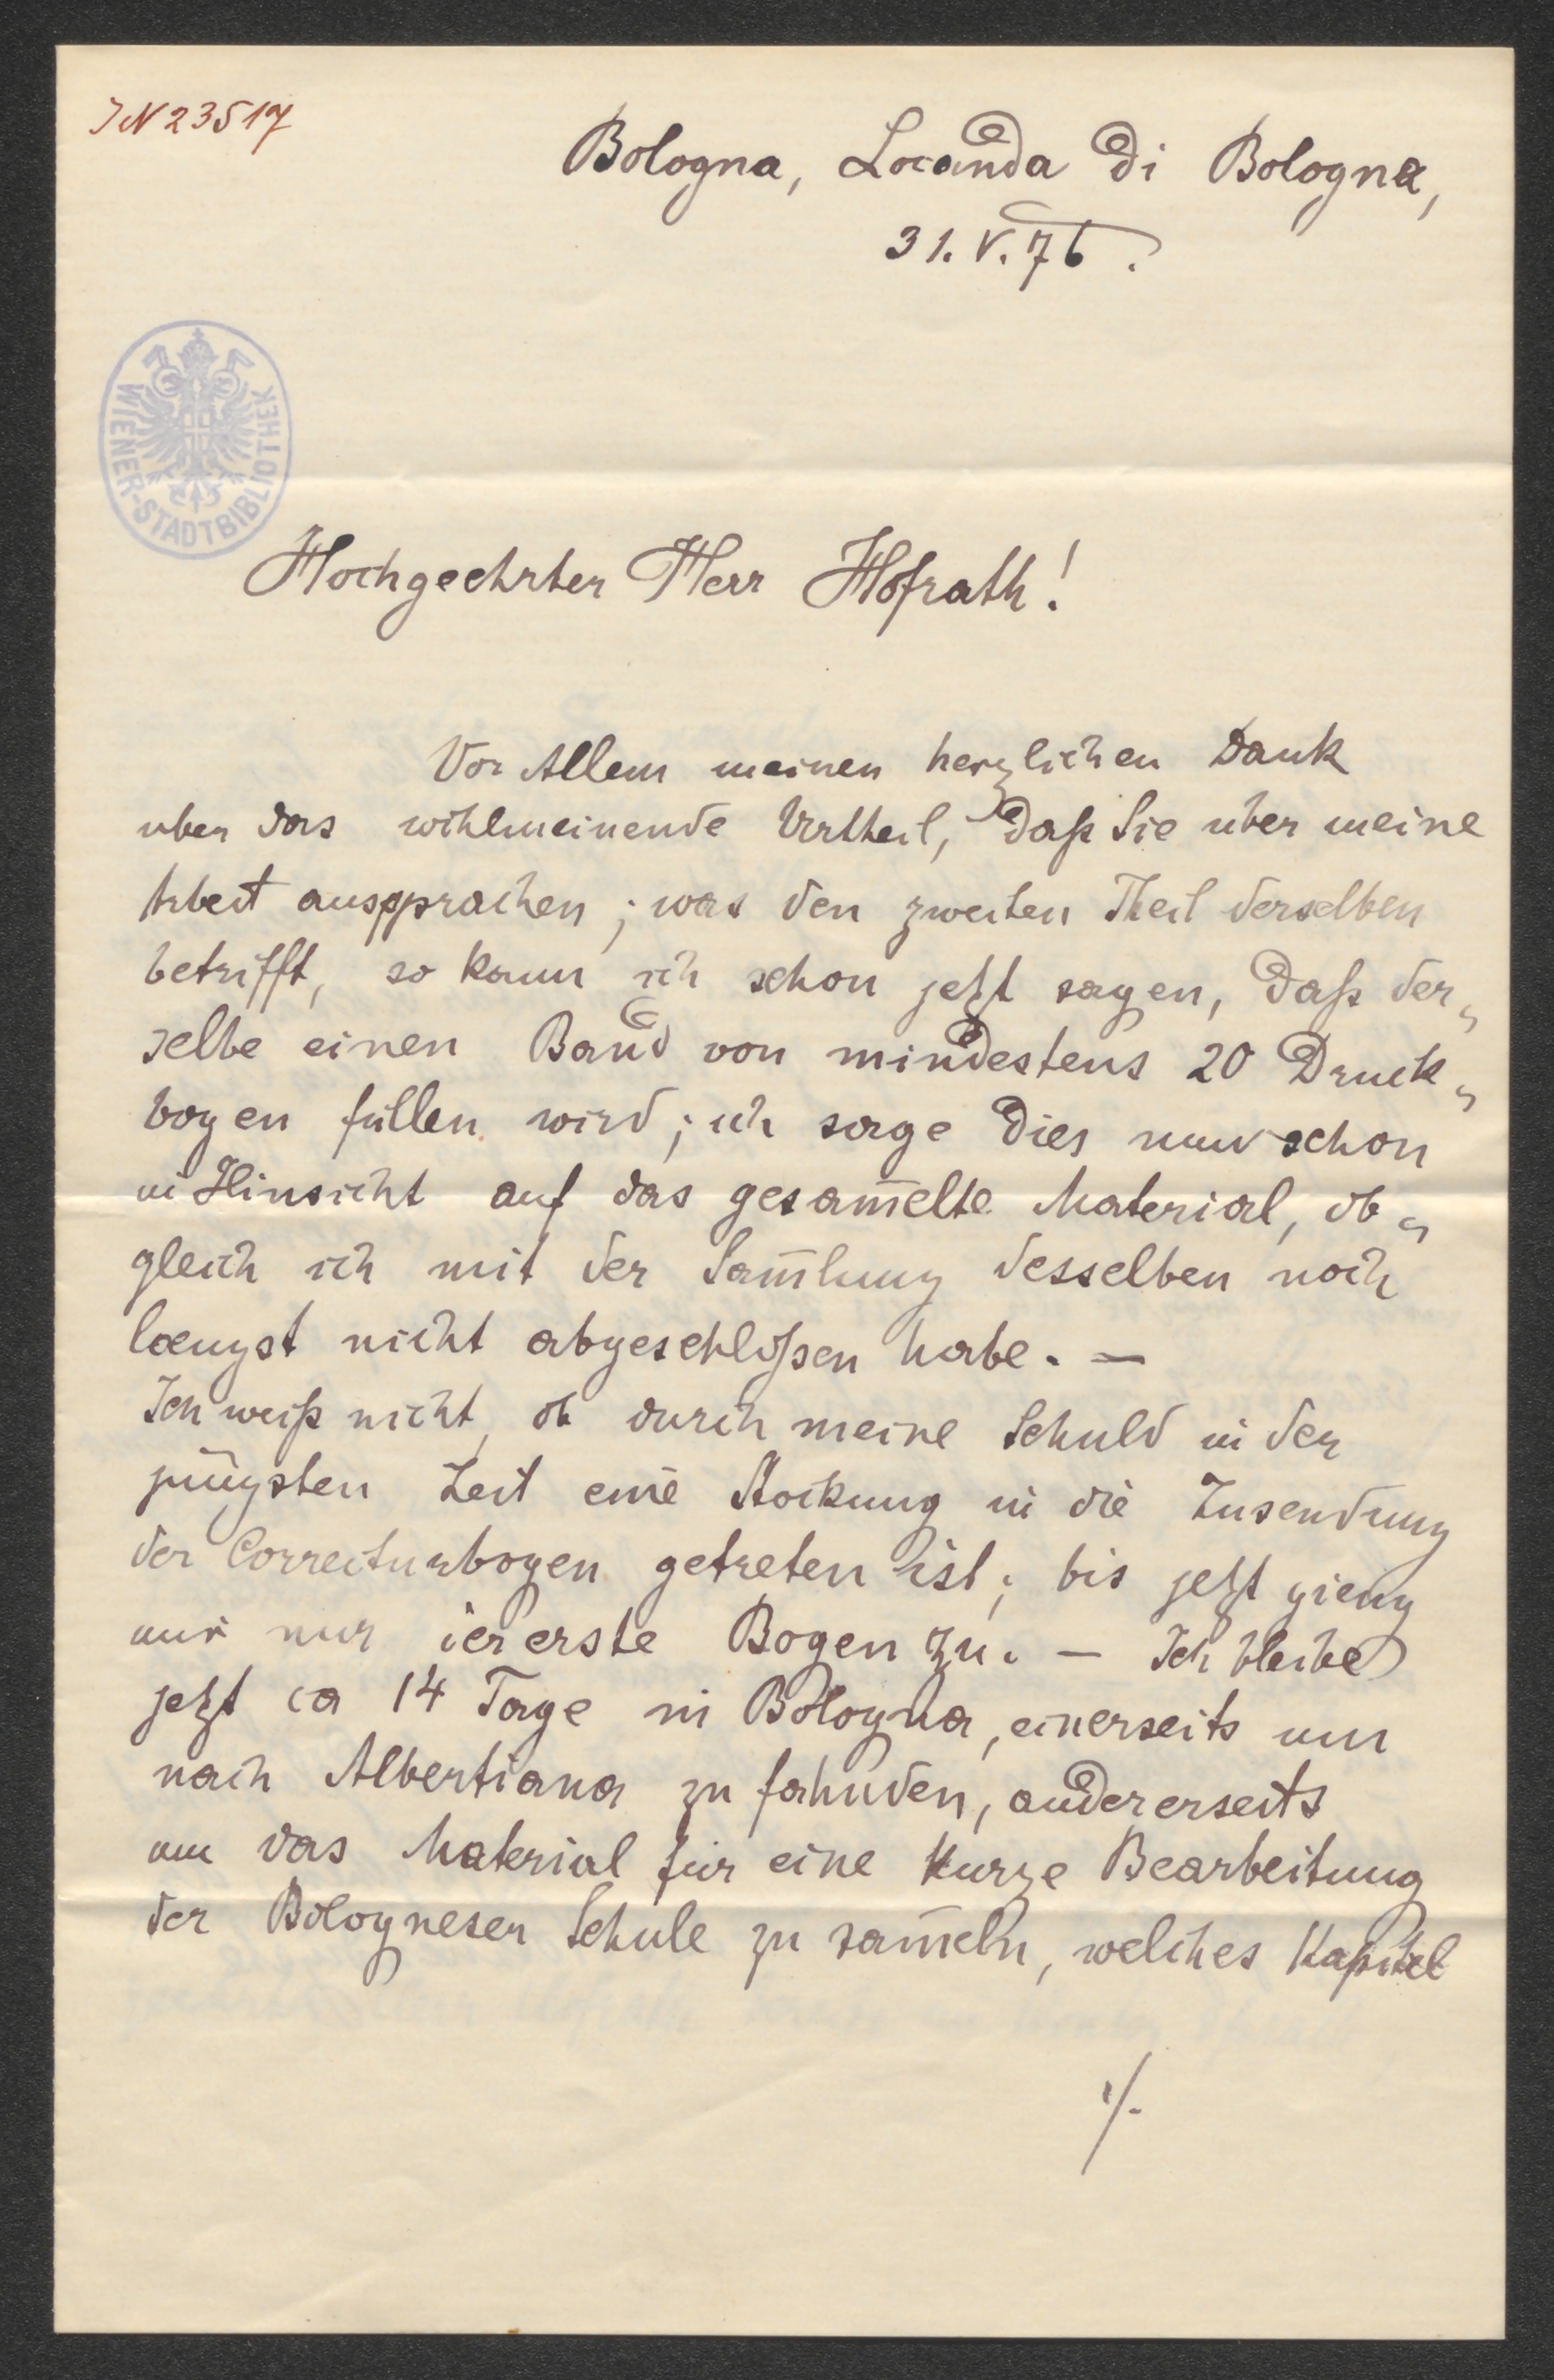 IN 23517
Bologna, Locanda di Bologna,
31. V. 76.
WIENER-STADTBIBLIOTHEK
Hochgeehrter Herr Hofrath!
Vor Allem meinen herzlichen Dank
uber das wohlmeinende Urtheil, daß Sie uber meine
Arbeit ausspprachen; was den zweiten Theil derselben
betrifft, so kann ich schon jetzt sagen, daß der„
selbe einen Band von mindestens 20 Druck„
bogen füllen wird; ich sage dies nur schon
in Hinsicht auf das gesam̅elte Material, ob„
gleich ich mit der Sam̅lung desselben noch
laengst nicht abgeschloßen habe. —
Ich weiß nicht, ob durch meine Schuld in der
jüngsten Zeit eine Stockung in die Zusendung
der Correcturbogen getreten ist; bis jetzt gieng
mir nur der erste Bogen zu. — Ich bleibe
jetzt ca 14 Tage in Bologna, einerseits um
nach Albertiana zu fahnden, andererseits
um das Material für eine kurze Bearbeitung
der Bologneser Schule zu sam̅eln, welches Kapitel
./.